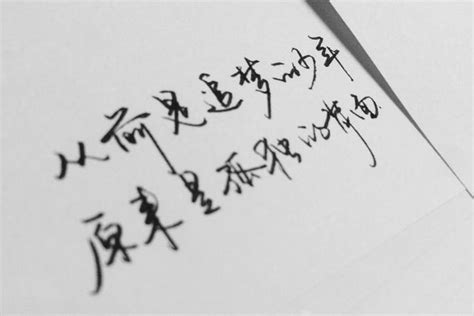 从前是追梦的少年
原来是孤独的面